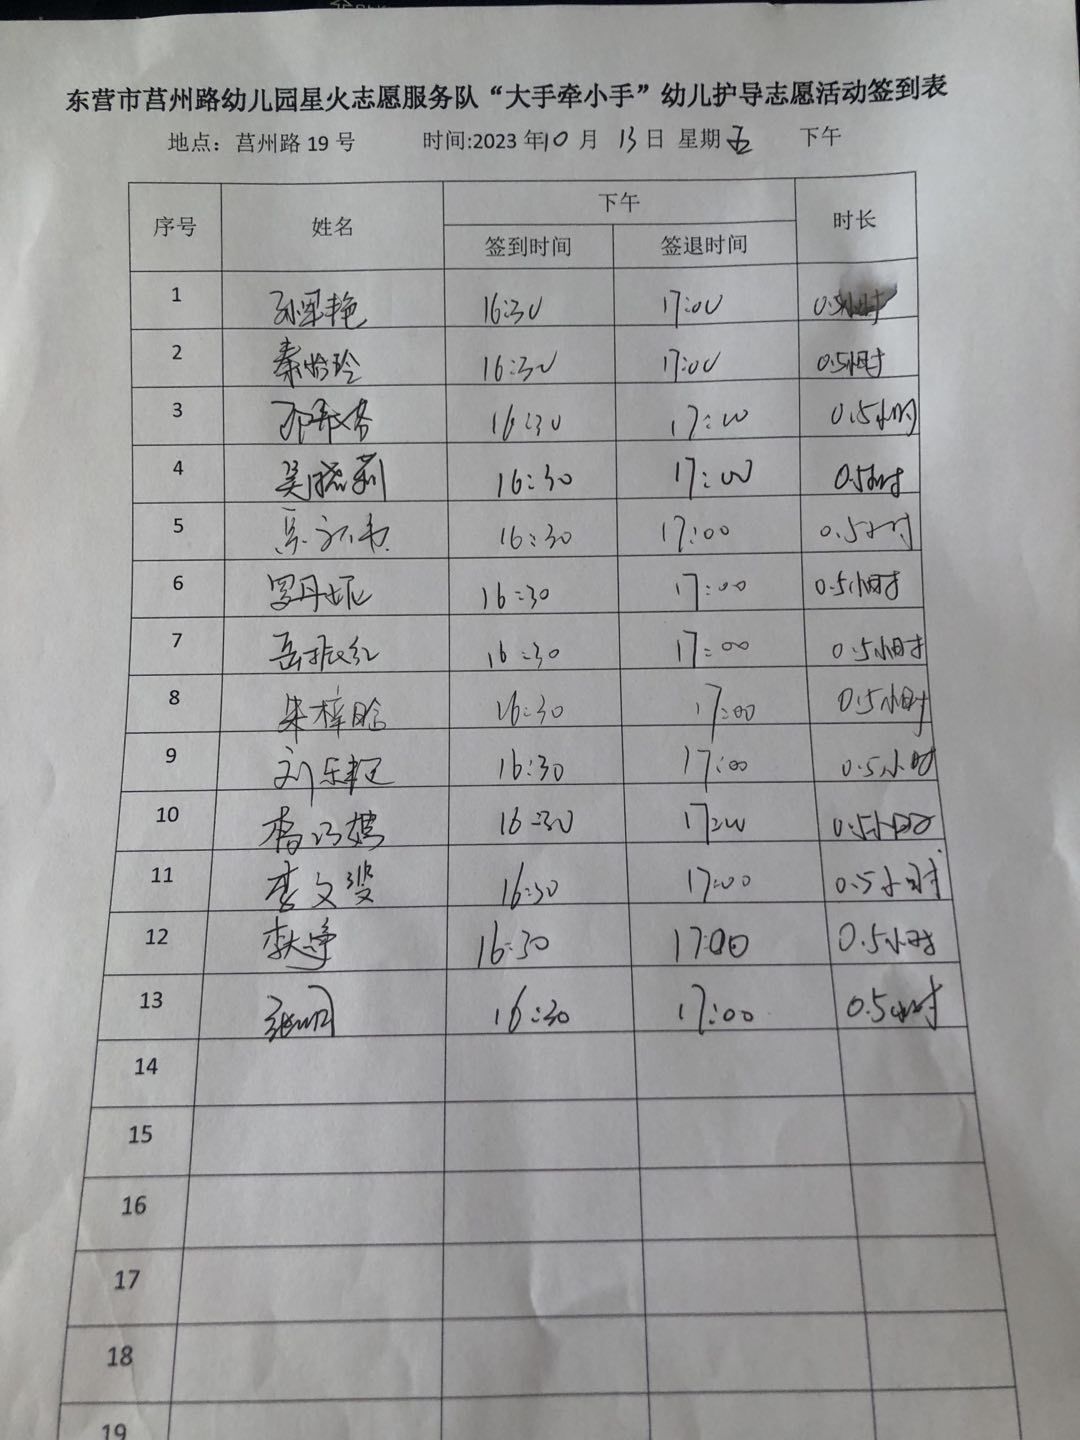 东营市莒州路幼儿园星火志愿服务队“大手牵小手”幼儿护导志愿活动签到表
地点：莒州路 19 号 时间:2023 年10 月 13 日 星期 五 下午
序号 姓名 下午 时长
签到时间 签退时间
1 孙翠艳 16:30 17:00 0.5小时
2 秦怡玲 16:30 17:00 0.5小时
3 16:30 17:00 0.5小时
4 吴晓莉 16:30 17:00 0.5小时
5 16:30 17:00 0.5小时
6 罗丹妮 16:30 17:00 0.5小时
7 岳振红 16:30 17:00 0.5小时
8 朱梓晗 16:30 17:00 0.5小时
9 刘东廷 16:30 17:00 0.5小时
10 16:30 17:00 0.5小时
11 李文斐 16:30 17:00 0.5小时
12 16:30 17:00 0.5小时
13 16:30 17:00 0.5小时
14
15
16
17
18
19